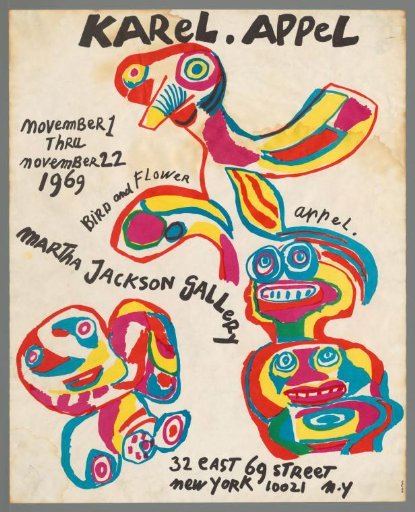 KAReL. APPeL
november 1
THRU
november 22
1969
BIRD and FLOWER
appel.
MARTHA JACKSON GALLeRY
32 eAST 69 STReeT
new YORK 10021 n.y